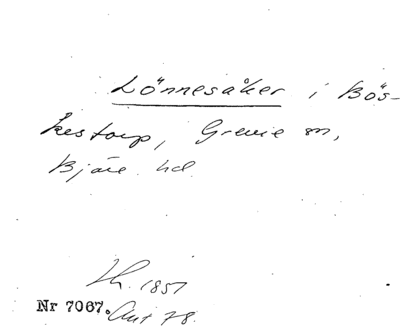 Lönnesåker i Bös-
kestorp, Grevie sn,
Bjäre hd
Lh. 1851
Nr 7067. Akt 78.